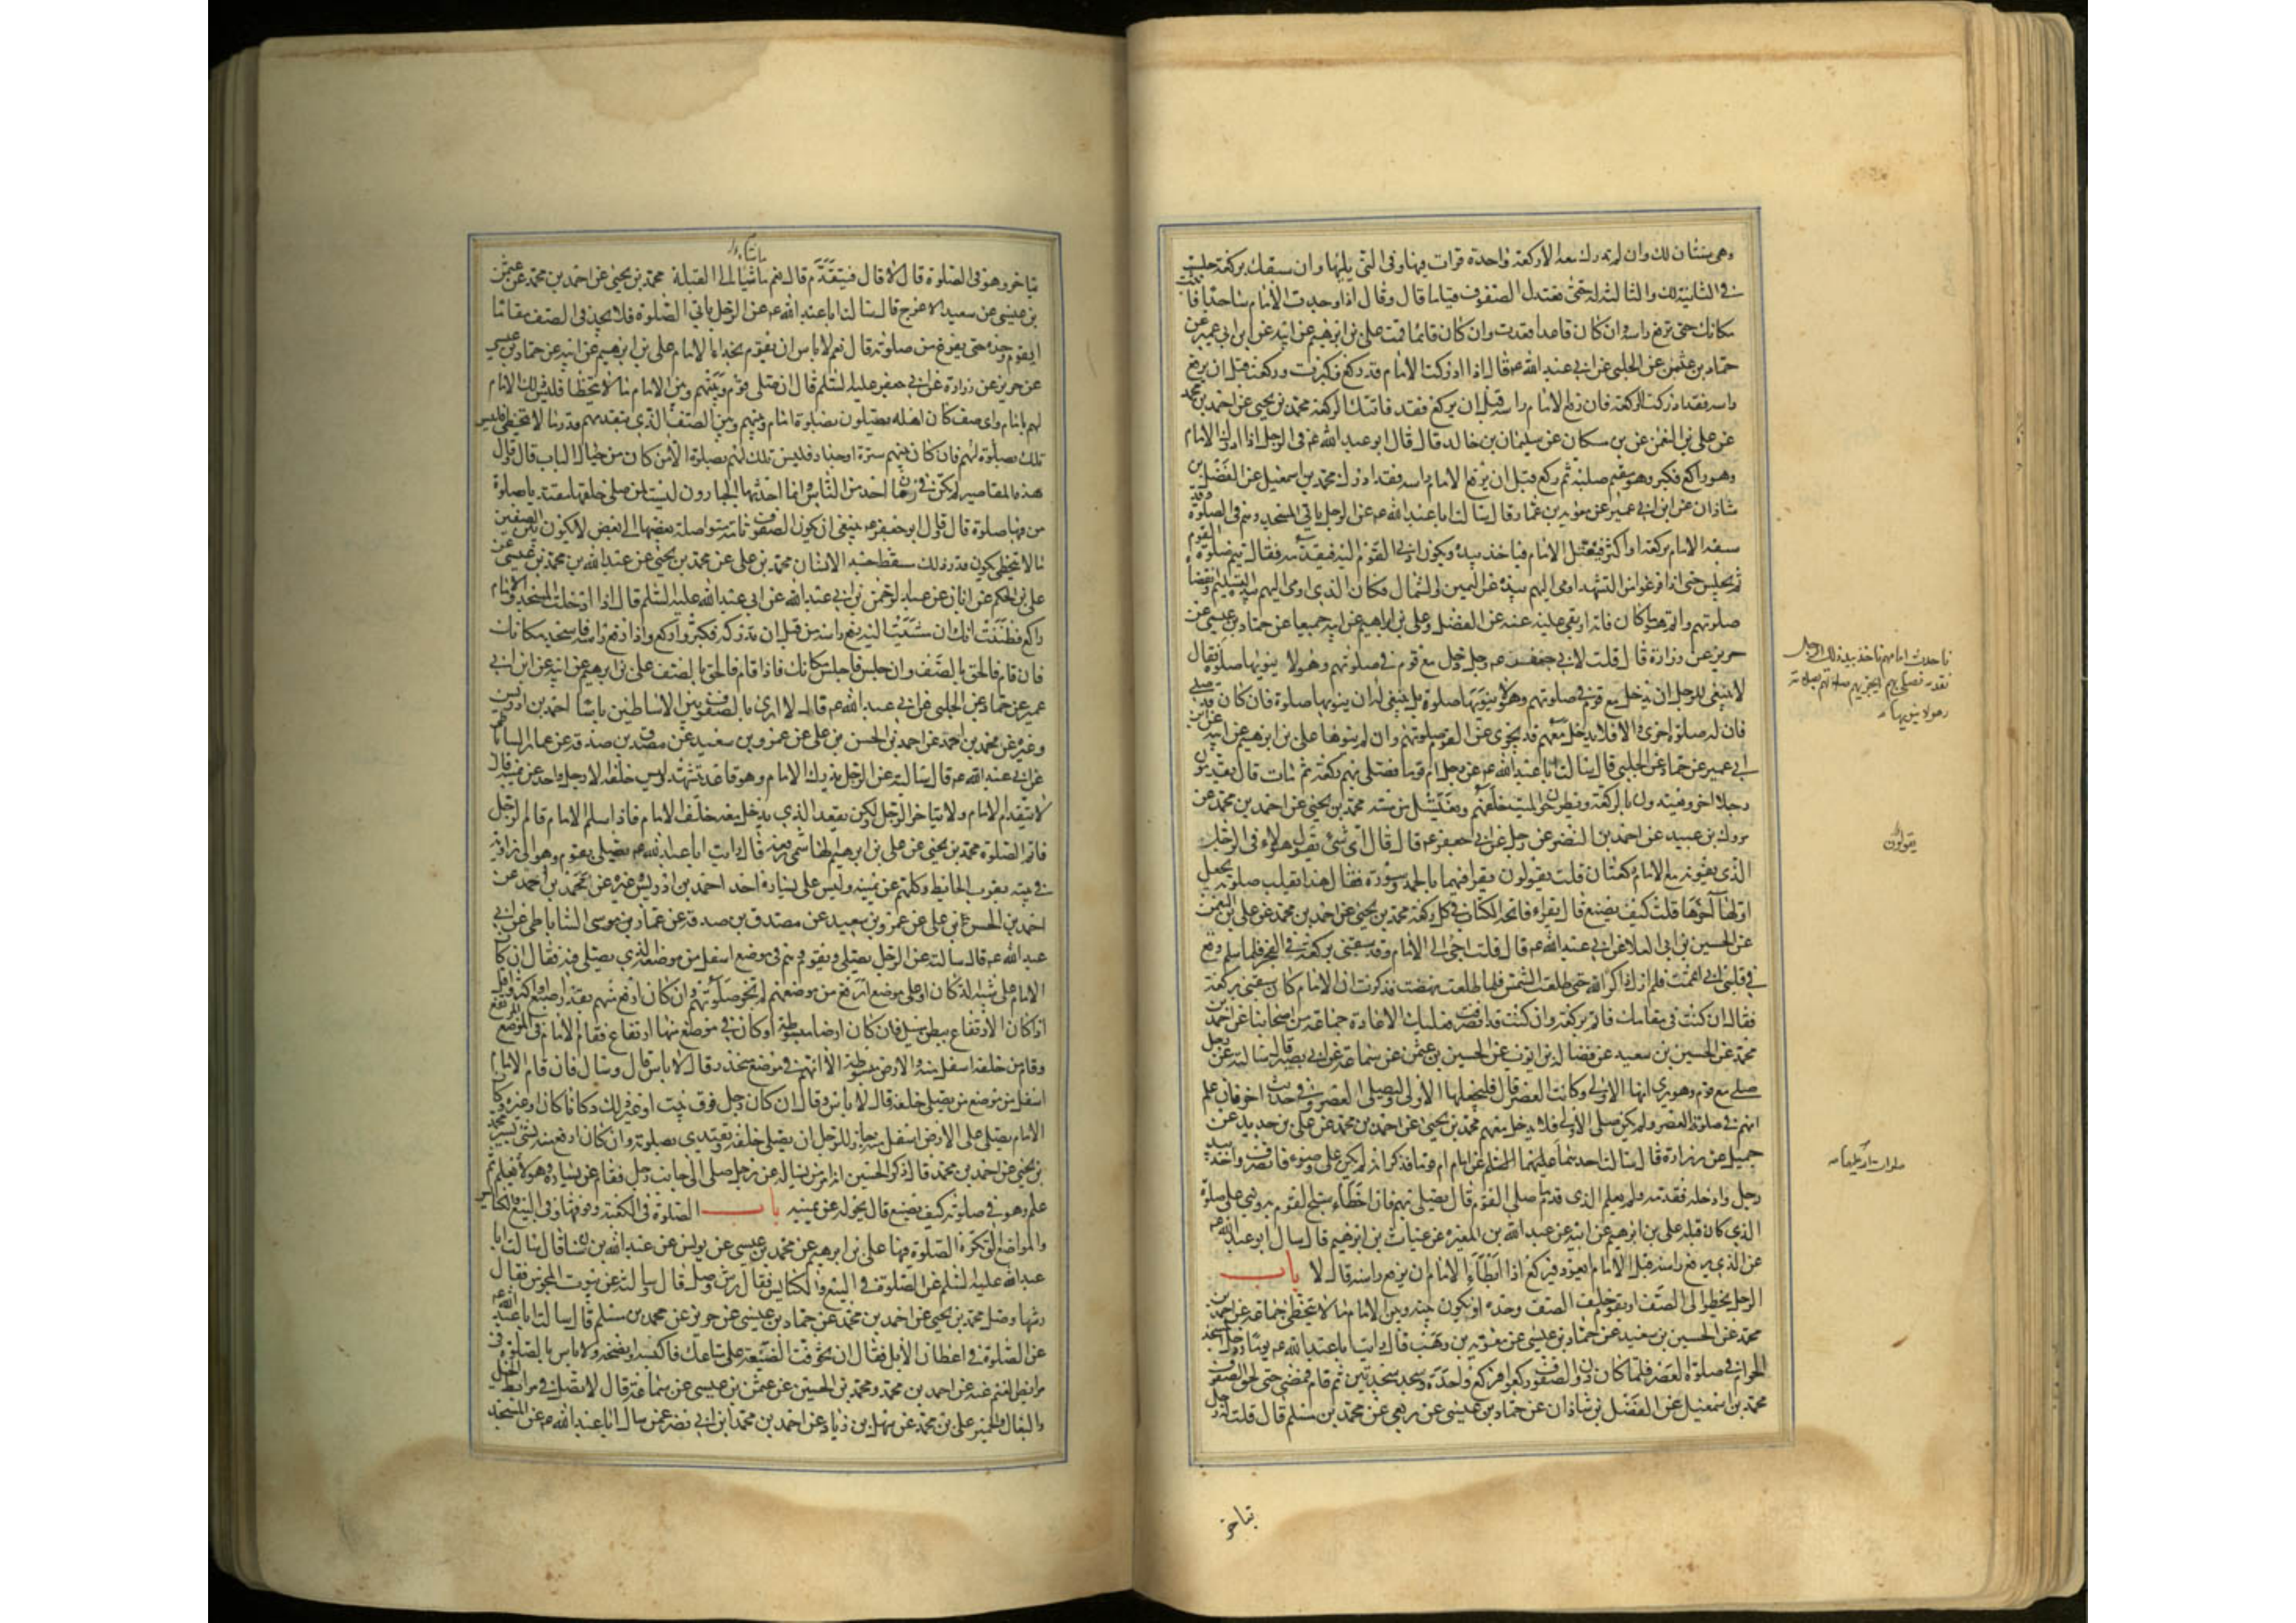 وهي ثنتان لك وان لم تدرك معه الا ركعة واحدة قرات فيها وفي التي يليها وان سبقك بركعة جلست
في الثانية لك والثالثة له حتى تعتدل الصفوف قياما قال وقال اذا وجدت الامام ساجدا فاثبت
مكانك حتى يرفع راسه وان كان قاعدا قعدت وان كان قائما قمت علي بن ابرهيم عن ابيه عن ابن ابي عمير عن
حماد بن عثمن عن الحلبي عن ابي عبد الله ع قال اذا ادركت الامام قد ركع فكبرت وركعت قبل ان يرفع
راسه فقد ادركت الركعة فان رفع الامام راسه قبل ان تركع فقد فاتتك الركعة محمد بن يحيى عن احمد بن محمد
عن علي بن النعمن عن بن مسكان عن سليمان بن خالد قال قال ابو عبد الله ع في الرجل اذا ادرك الامام
وهو راكع فكبر وهو مقيم صلبه ثم ركع قبل ان يرفع الامام راسه فقد ادرك محمد بن اسمعيل عن الفضل بن
شاذان عن ابن ابي عمير عن معوية بن عمار قال سالت ابا عبد الله ع عن الرجل ياتي المسجد وهم في الصلوة وقد
سبقه الامام بركعة او اكثر فيعتل الامام فياخذ بيده ويكون ادنى القوم اليه فيقدمه فقال يتم صلوة القوم
ثم يجلس حتى اذا فرغوا من التشهد اومى اليهم بيده عن اليمين والشمال فكان الذي اومى اليهم بيده التسليم وانقضاء
صلوتهم واتم هو ما كان فاته او بقي عليه عنه عن الفضل وعلي بن ابراهيم عن ابيه جميعا عن حماد بن عيسى عن
حريز عن زرارة قال قلت لابي جعفر ع رجل دخل مع قوم في صلوتهم وهو لا ينويها صلوة فقال
لا ينبغي للرجل ان يدخل مع قوم في صلوتهم وهو لا ينويها صلوة بل ينبغي له ان ينويها صلوة فان كان قد صلى
فان له صلوة اخرى والا فلا يدخل معهم قد يجزى عن القوم صلوتهم وان لم ينوها علي بن ابرهيم عن ابيه عن ابن
ابي عمير عن حماد عن الحلبي قال سالت ابا عبد الله ع عن رجل ام قوما فصلى بهم ركعة ثم مات قال يقدمون
رجلا اخر ويعتدون بالركعة ويطرحون الميت خلفهم ويغتسل من مسه محمد بن يحيى عن احمد بن محمد عن
مروك بن عبيد عن احمد بن النضر عن رجل عن ابي جعفر ع قال قال اي شئ يقول هؤلاء في الرجل
الذي يفوته مع الامام ركعتان قلت يقولون يقرا فيهما بالحمد وسورة فقال هذا يقلب صلوته يجعل
اولها آخرها قلت كيف يصنع قال يقراء فاتحة الكتاب في كل ركعة محمد بن يحيى عن احمد بن محمد عن علي بن النعمن
عن الحسين بن ابي العلا عن ابي عبد الله ع قال قلت اجئ الى الامام وقد سبقني بركعة في الفجر فلما سلم وقع
في قلبي اني اتممت فلم ازل ذاكر الله حتى طلعت الشمس فلما طلعت نهضت فذكرت ان الامام كان سبقني بركعة
فقال ان كنت في مقامك فاتم بركعة وان كنت قد انصرفت فعليك الاعادة جماعة من اصحابنا عن احمد بن
محمد عن الحسين بن سعيد عن فضالة بن ايوب عن الحسين بن عثمن عن سماعة عن ابي بصير قال سالته عن رجل
صلى مع قوم وهو يرى انها الاولى وكانت العصر قال فليجعلها الاولى وليصلي العصر وفي حديث اخر فان علم
انهم في صلوة العصر ولم يكن صلى الاولى فلا يدخل معهم محمد بن يحيى عن احمد بن محمد عن علي بن حديد عن
جميل عن زرارة قال سالت احدهما عليهما السلم عن امام ام قوما فذكر انه لم يكن على وضوء فانصرف واخذ بيد
رجل وادخله فقدمه ولم يعلم الذي قدم ما صلى القوم قال يصلي بهم فان اخطاء سبح القوم به وبني على صلوة
الذي كان قبله علي بن ابرهيم عن ابيه عن عبد الله بن المغيرة عن غياث بن ابرهيم قال سال ابو عبد الله ع
عن الذي يرفع راسه قبل الامام ايعود فيركع اذا ابطاء الامام ان يرفع راسه قال لا باب
الرجل يخطو الى الصف او يقوم خلف الصف وحده او يكون بينه وبين الامام ما لا يتخطى جماعة عن احمد بن
محمد عن الحسين بن سعيد عن حماد بن عيسى عن معوية بن وهب قال رايت ابا عبد الله ع يوما دخل المسجد
الحرام في صلوة العصر فلما كان دون الصفوف ركعوا فركع وحده وسجد سجدتين ثم قام فمضى حتى لحق الصفوف
محمد بن اسمعيل عن الفضل بن شاذان عن حماد بن عيسى عن ربعي عن محمد بن مسلم قال قلت له الرجل
يقولون
يتاخر
يتاخر وهو في الصلوة قال لا قال فيتقدم قال نعم ماشيا الى القبلة محمد بن يحيى عن احمد بن محمد عن عثمن
بن عيسى عن سعيد الاعرج قال سالت ابا عبد الله ع عن الرجل ياتي الصلوة فلا يجد في الصف مقاما
ايقوم وحده حتى يفرغ من صلوته قال نعم لا باس ان يقوم بحذاء الامام علي بن ابرهيم عن ابيه عن حماد بن عيسى
عن حريز عن زرارة عن ابي جعفر عليه السلم قال ان صلى قوم وبينهم وبين الامام ما لا يتخطا فليس ذلك الامام
لهم بامام واي صف كان اهله يصلون بصلوة امام وبينهم وبين الصف الذي يتقدمهم قدر ما لا يتخطى فليس
تلك بصلوة لهم فان كان بينهم سترة او جدار فليس تلك لهم بصلوة الا من كان من حيال الباب قال قال
هذه المقاصير لم يكن في زمان احد من الناس وانما احدثها الجبارون ليست لمن صلى خلفها مقتديا بصلوة
من فيها صلوة قال قال ابو جعفر ع ينبغي ان يكون الصفوف تامة متواصلة بعضها الى بعض لا يكون بين صفين
ما لا يتخطى يكون قدر ذلك مسقط جسد الانسان محمد بن علي عن محمد بن يحيى عن عبد الله بن محمد بن عيسى عن
علي بن الحكم عن ابان عن عبد الرحمن بن ابي عبد الله عن ابي عبد الله عليه السلم قال اذا دخلت المسجد والامام
راكع فظننت انك ان مشيت اليه يرفع راسه من قبل ان تدركه فكبر واركع واذا رفع راسه فاسجد مكانك
فان قام فالحق بالصف وان جلس فاجلس مكانك فاذا قام فالحق بالصف علي بن ابرهيم عن ابيه عن ابن ابي
عمير عن حماد عن الحلبي عن ابي عبد الله ع قال لا ارى بالصفوف بين الاساطين باسا احمد بن ادريس
وغيره عن محمد بن احمد عن احمد بن الحسن بن علي عن عمرو بن سعيد عن مصدق بن صدقة عن عمار الساباطي
عن ابي عبد الله ع قال سالته عن الرجل يدرك الامام وهو قاعد يتشهد وليس خلفه الا رجل واحد عن يمينه قال
لا يتقدم الامام ولا يتاخر الرجل ولكن يقعد الذي يدخل معه خلف الامام فاذا سلم الامام قام الرجل
فاتم الصلوة محمد بن يحيى عن علي بن ابرهيم الهاشمي رفعه قال رايت ابا عبد الله ع يصلي بقوم وهو الى زاوية
في بيته بقرب الحائط وكلهم عن يمينه وليس على يساره احد احمد بن ادريس وغيره عن محمد بن احمد عن
احمد بن الحسن بن علي عن عمرو بن سعيد عن مصدق بن صدقة عن عمار بن موسى الساباطي عن ابي
عبد الله ع قال سالته عن الرجل يصلي بقوم وهم في موضع اسفل من موضعه الذي يصلي فيه فقال ان كان
الامام على شبه الدكان او على موضع ارفع من موضعهم لم تجز صلوتهم وان كان ارفع منهم بقدر اصبع او اكثر او اقل
اذا كان الارتفاع ببطن مسيل فان كان ارضا مبسوطة او كان في موضع منها ارتفاع فقام الامام في الموضع المرتفع
وقام من خلفه اسفل منه والارض مبسوطة الا انهم في موضع منحدر قال لا باس قال وسال فان قام الامام
اسفل من موضع من يصلي خلفه قال لا باس وقال ان كان رجل فوق بيت او غير ذلك دكانا كان او غيره وكان
الامام يصلي على الارض اسفل منه جاز للرجل ان يصلي خلفه ويقتدي بصلوته وان كان ارفع منه بشئ يسير محمد
بن يحيى عن احمد بن محمد قال ذكر الحسين انه امر من يساله عن رجل صلى الى جانب رجل فقام عن يساره وهو لا يعلم ثم
علم وهو في صلوته كيف يصنع قال يحوله عن يمينه باب الصلوة في الكعبة وفوقها وفي البيع والكنائس
والمواضع التي تكره الصلوة فيها علي بن ابرهيم عن محمد بن عيسى عن يونس عن عبد الله بن سنان قال سالت ابا
عبد الله عليه السلم عن الصلوة في البيع والكنايس فقال رش وصل قال وسالته عن بيوت المجوس فقال
رشها وصل محمد بن يحيى عن احمد بن محمد عن حماد بن عيسى عن حريز عن محمد بن مسلم قال سالت ابا عبد الله ع
عن الصلوة في اعطان الابل فقال ان تخوفت الضيعة على متاعك فاكنسه وانضحه ولا باس بالصلوة في
مرابض الغنم عنه عن احمد بن محمد ومحمد بن الحسين عن عثمن بن عيسى عن سماعة قال لا تصل في مرابط الخيل
والبغال والحمير علي بن محمد عن سهل بن زياد عن احمد بن محمد بن ابي نصر عمن سال ابا عبد الله ع عن المسجد